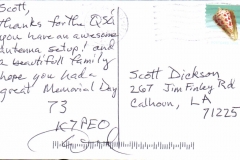 Scott,
Thanks for the QSO
you have an awesome
antenna setup! and
a beautiful family
hope you had a
great Memorial Day
73
K7AEO
Scott Dickson
267 Jim Finley Rd
Calhoun, LA
71225